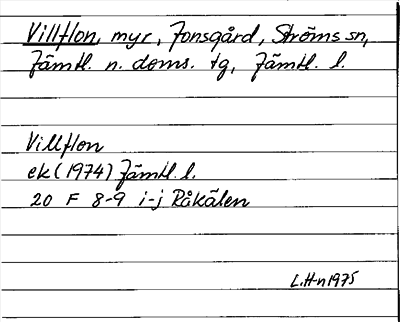 Villflon, myr, Jonsgård, Ströms sn,
Jämtl. n. doms. tg, Jämtl. l.
Villflon
ek (1974) Jämtl. l.
20 F 8-9 i-j Råkälen
L.H-n 1975